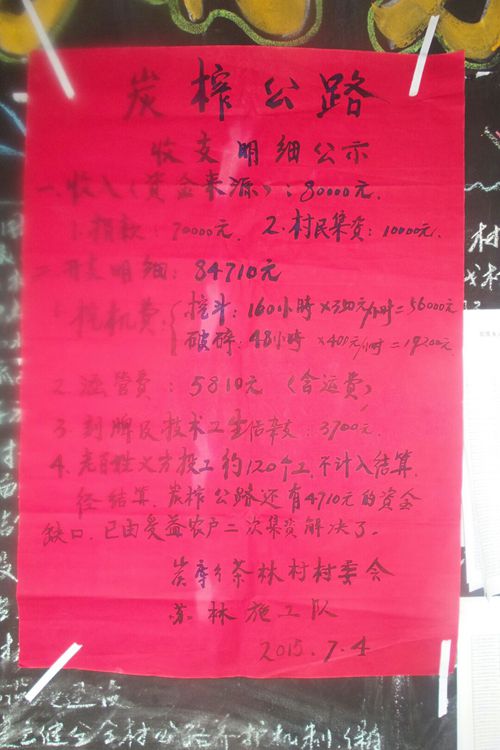 炭榨公路
收支明细公示
一.收入(资金来源):80000元.
1.捐款:70000元. 2.村民集资:10000元.
二.开支明细:84710元
1.挖机费:
挖斗:160小時×350元/小時=56000元
破碎:48小時×400元/小時=19200元
2.涵管费:5810元(含运费)
3.刻牌及技术工生活杂支:3700元.
4.老百姓义方投工约120个工.不计入结算.
经结算.炭榨公路还有4710元的资金
缺口.已由受益农户二次集资解决了.
茶林村村委会
苏林施工队
2015.7.4
村
健全
村公路养护机制